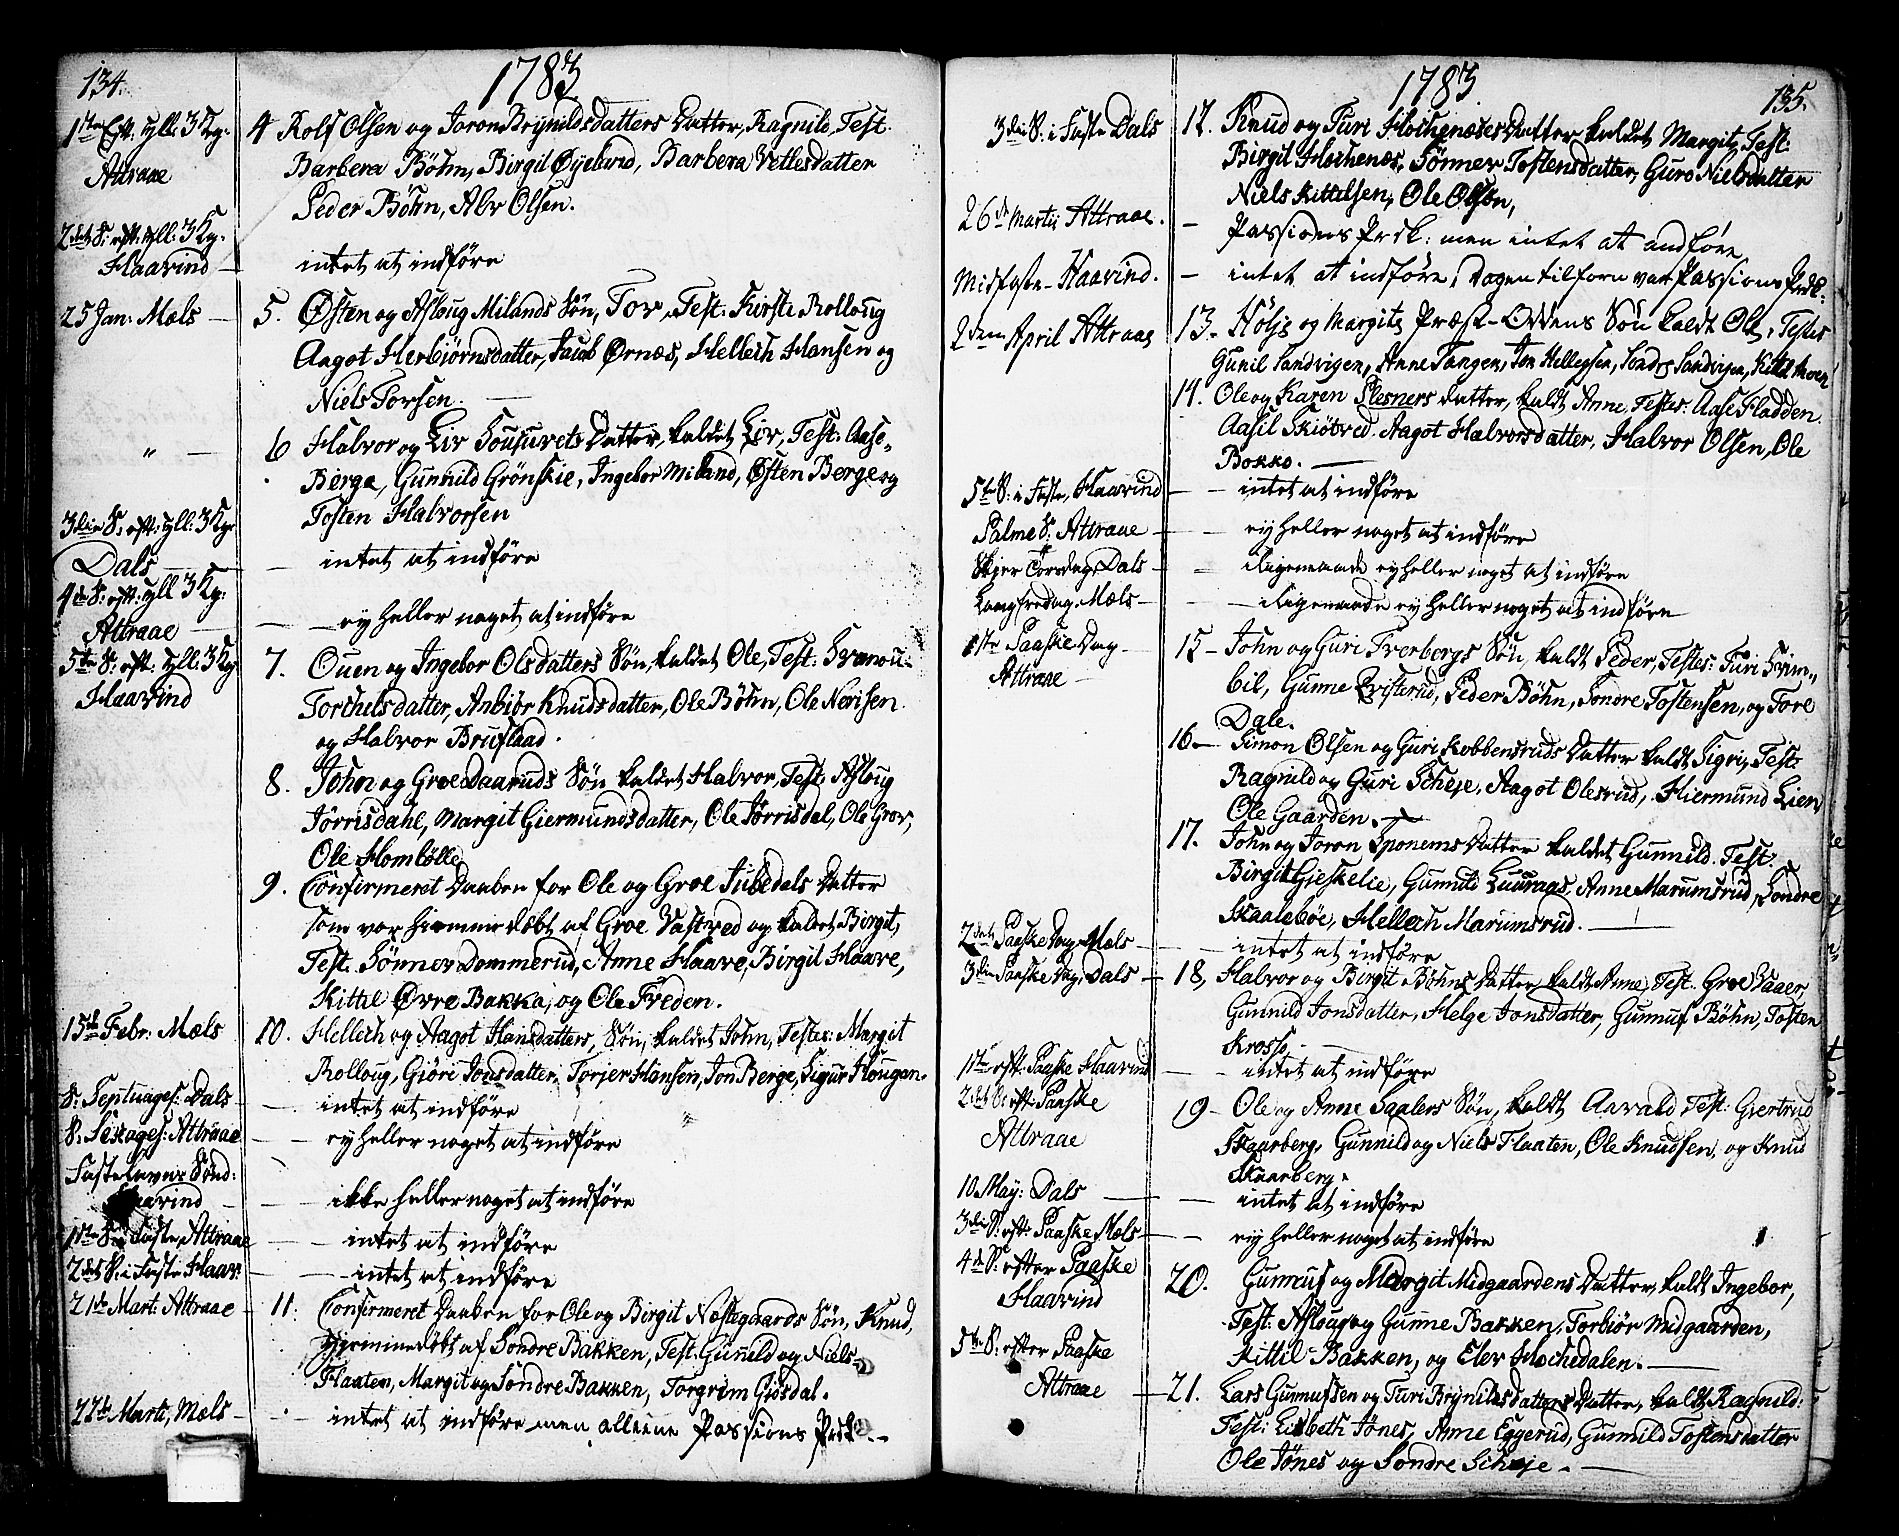 134.
1783
1ste Eft. hyll: 3 Kg: Attraae
4 Rolf Olsen og Joron Brynildsdatters Datter, Ragnild, Test.
Barbera Böhn, Birgit Øyelund, Barbera Vetlesdatter
Peder Böhn, Alv Olsen.
2det S: eft: hyll: 3 Kg. Haavind —
intet at indföre
25 Jan: Mæls —
5. Østen og Asloug Milands Sön, Tov, Test: Kirsti Rolloug
Aagot Herbiörnsdatter, Jacob Ørnæs, Hellech Hansen og
Niels Torsen. —
" —
6 Halvor og Liv Sousuvets Datter, kaldet Liv, Test: Aase
Berge, Gunnild Grönskie, Ingebor Miland, Østen Berge og
Tosten Halvorsen
3die S: eft: hyll: 3 Kg: Dals —
— intet at indföre
4de S: eft: hyll 3 Kg: Attraae —
— ey heller noget at indföre
5te S: eft: hyll: 3 Kg Haavind
7. Ouen og Ingebor Olsdatters Sön, kaldet Ole, Test:
Torchelsdatter, Anbiör Knudsdatter, Ole Böhn, Ole Norisen
og Halvor Bruflaad.
8. John og Groe Daaruds Sön kaldet Halvor, Test: Asloug
Jörrisdahl, Margit Giermundsdatter, Ole Jörrisdal, Ole Grov,
Ole Hombölle
9. Confirmeret Daaben for Ole og Groe Jubedals Datter
som var hiemmedöbt af Groe Vastved og kaldet Birgit,
Test. Sönnev Dommerud, Anne Haave, Birgit Haave,
Kittil Øvre Bakka, og Ole Fredem.
15de Febr: Mæls
10. Hellech og Aagot Hansdatters, Sön, kaldet John, Testes: Margit
Rolloug, Giöri Jonsdatter, Torjer Hansen, Jon Berge, Sigur Hougan.
S: Septuages: Dals —
— intet at indföre
S: Sexages: Attraae —
— ey heller noget at indföre
Fastelavns Sönd: Haavind —
— ikke heller noget at indföre
1ste S: i Faste, Attraae
— intet at indföre
2det S: i Faste Haav:
— intet at indföre
21de Mart: Attraae —
11. Confirmeret Daaben for Ole og Birgit Næstegaards Sön, Knud,
hjemmedöbt af Söndre Bakken, Test. Gunild og Niels
Flaaten, Margit og Söndre Bakken, Torgrim Giösdal.
22de Marti, Mæls —
— intet at indföre men alleene Passions Prdk. —
1783
135.
3die S: i Faste Dals
12. Knud og Turi Hochenæses Datter kaldet Margit, Test:
Birgit Hochenæs, Sönnev Tostensdatter, Guro Nielsdatter
Niels Kittilsen, Ole Olsen,
26de Martii Attraae.
— Passions Prdk: men intet at andföre
Midfaste — Haavind.
— intet at indföre, Dagen tilforn var Passions Prdk:
2den April Attraae
13. Höljo og Margits Præst-Odens Sön kaldt Ole, Testes
Gunil Sandvigen, Anne Tangen, Jon Hellegsen, Sondre Sandvigen, Kittil Moen
14. Ole og Karen Plesners Datter, kaldt Anne, Testes: Aase Fladden
Aasil Skiötved. Aagot Halvorsdatter, Halvor Olsen, Ole
Bokko. —
5te S: i Faste, Haavind
— intet at indföre
Palme S: Attraae —
— ey heller noget at indföre
Skjer Torsdag, Dals —
— iligemaade ey heller noget at indföre
Langfredag. Mæls —
— iligemaade ey heller noget at indföre
1ste Paaske Dag — Attraae —
15 — John og Guri Tverbergs Sön, kaldt Peder, Testes: Turi Svin-
bil, Gunne Qvisterud, Peder Böhn, Sondre Tostensen, og Tore
Dale.
16. — Simon Olsen og Guri Kobbensruds Datter kaldt Sigri, Test:
Ragnild og Guri Scheje, Aagot Olesrud, Hiermund Lien,
Ole Gaarden.
17. John og Joron Sponems Datter kaldet Gunnild. Test.
Birgit Gieskelie, Gunnild Luuraas, Anne Marumsrud, Sondre
Skaaleböe, Hellech Marumsrud. —
2det Paaske Dag. Mæls —
— intet at indföre
3die Paaske Dag, Dals —
18, Halvor og Birgit Böhns Datter, kaldt Anne, Test. Groe Vaaer
Gunnild Jonsdatter, Helge Jonsdatter, Gunnuf Böhn, Tosten
Krosso. —
1ste eft. Paaske Haavind
— intet at indföre
2det S: eft. Paaske Attraae
19 — Ole og Anne Saalers Sön, kaldt Aavald Test: Giertrud
Skaarberg, Gunnild og Niels Flaaten, Ole Knudsen, og Knud
Skaarberg.
10. May: Dals —
— intet at indföre
3die S. eft: Paaske Mæls —
— ey heller noget at indföre
4de S: efter Paaske Haavind
20. Gunnuf og Margit Midgaardens Datter, kaldt Ingebor,
Test: Asloug og Gunne Bakken, Torbiör Midgaarden,
Kittil Bakken, og Elev Hochedalen. —
5te S: efter Paaske Attraae —
21. Lars Gunnufsen og Turi Brynildsdatters Datter, kaldt Ragnild:
Test: Lisbeth Jönes, Anne Eggerud, Gunnild Tostensdatter
Ole Jönes og Sondre Scheje. —